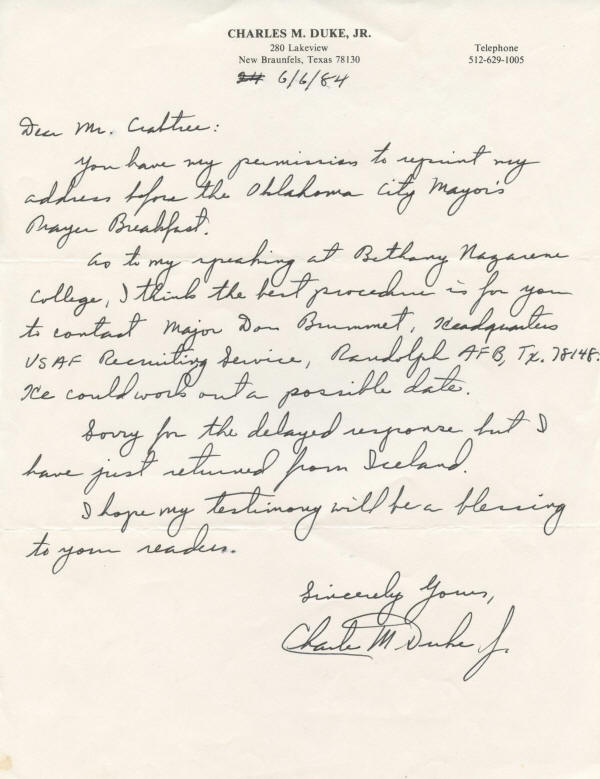 CHARLES M. DUKE, JR.
280 Lakeview
New Braunfels, Texas 78130
Telephone
512-629-1005
6/6/84
Dear Mr. Crabtree:
You have my permission to reprint my
address before the Oklahoma City Mayor's
Prayer Breakfast.
As to my speaking at Bethany Nazarene
College, I think the best procedure is for you
to contact Major Don Brummet, Headquarters
USAF Recruiting Service, Randolph AFB, Tx. 78148.
He could work out a possible date.
Sorry for the delayed response but I
have just returned from Iceland.
I hope my testimony will be a blessing
to your readers.
Sincerely Yours,
Charles M Duke Jr.